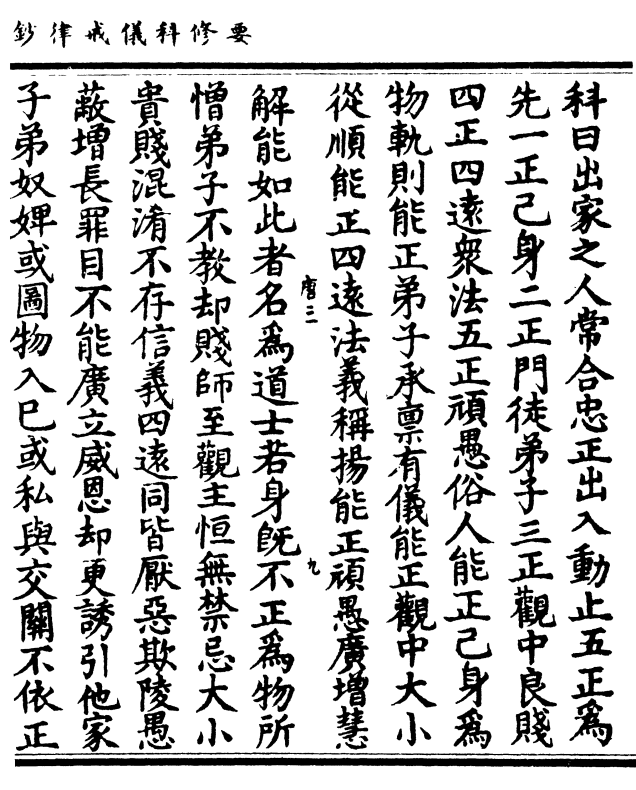 要修科儀戒律鈔
科曰出家之人常合忠正出入動止五正爲
先一正己身二正門徒弟子三正觀中良賤
四正四遠衆法五正頑愚俗人能正己身爲
物軌則能正弟子承禀有儀能正觀中大小
從順能正四遠法義稱揚能正頑愚廣增慧
唐三
九
解能如此者名爲道士若身旣不正爲物所
憎弟子不教却賤師至觀主恒無禁忌大小
貴賤混淆不存信義四遠同皆厭惡欺陵愚
蔽增長罪目不能廣立威恩却更誘引他家
子弟奴婢或圖物入己或私與交關不依正